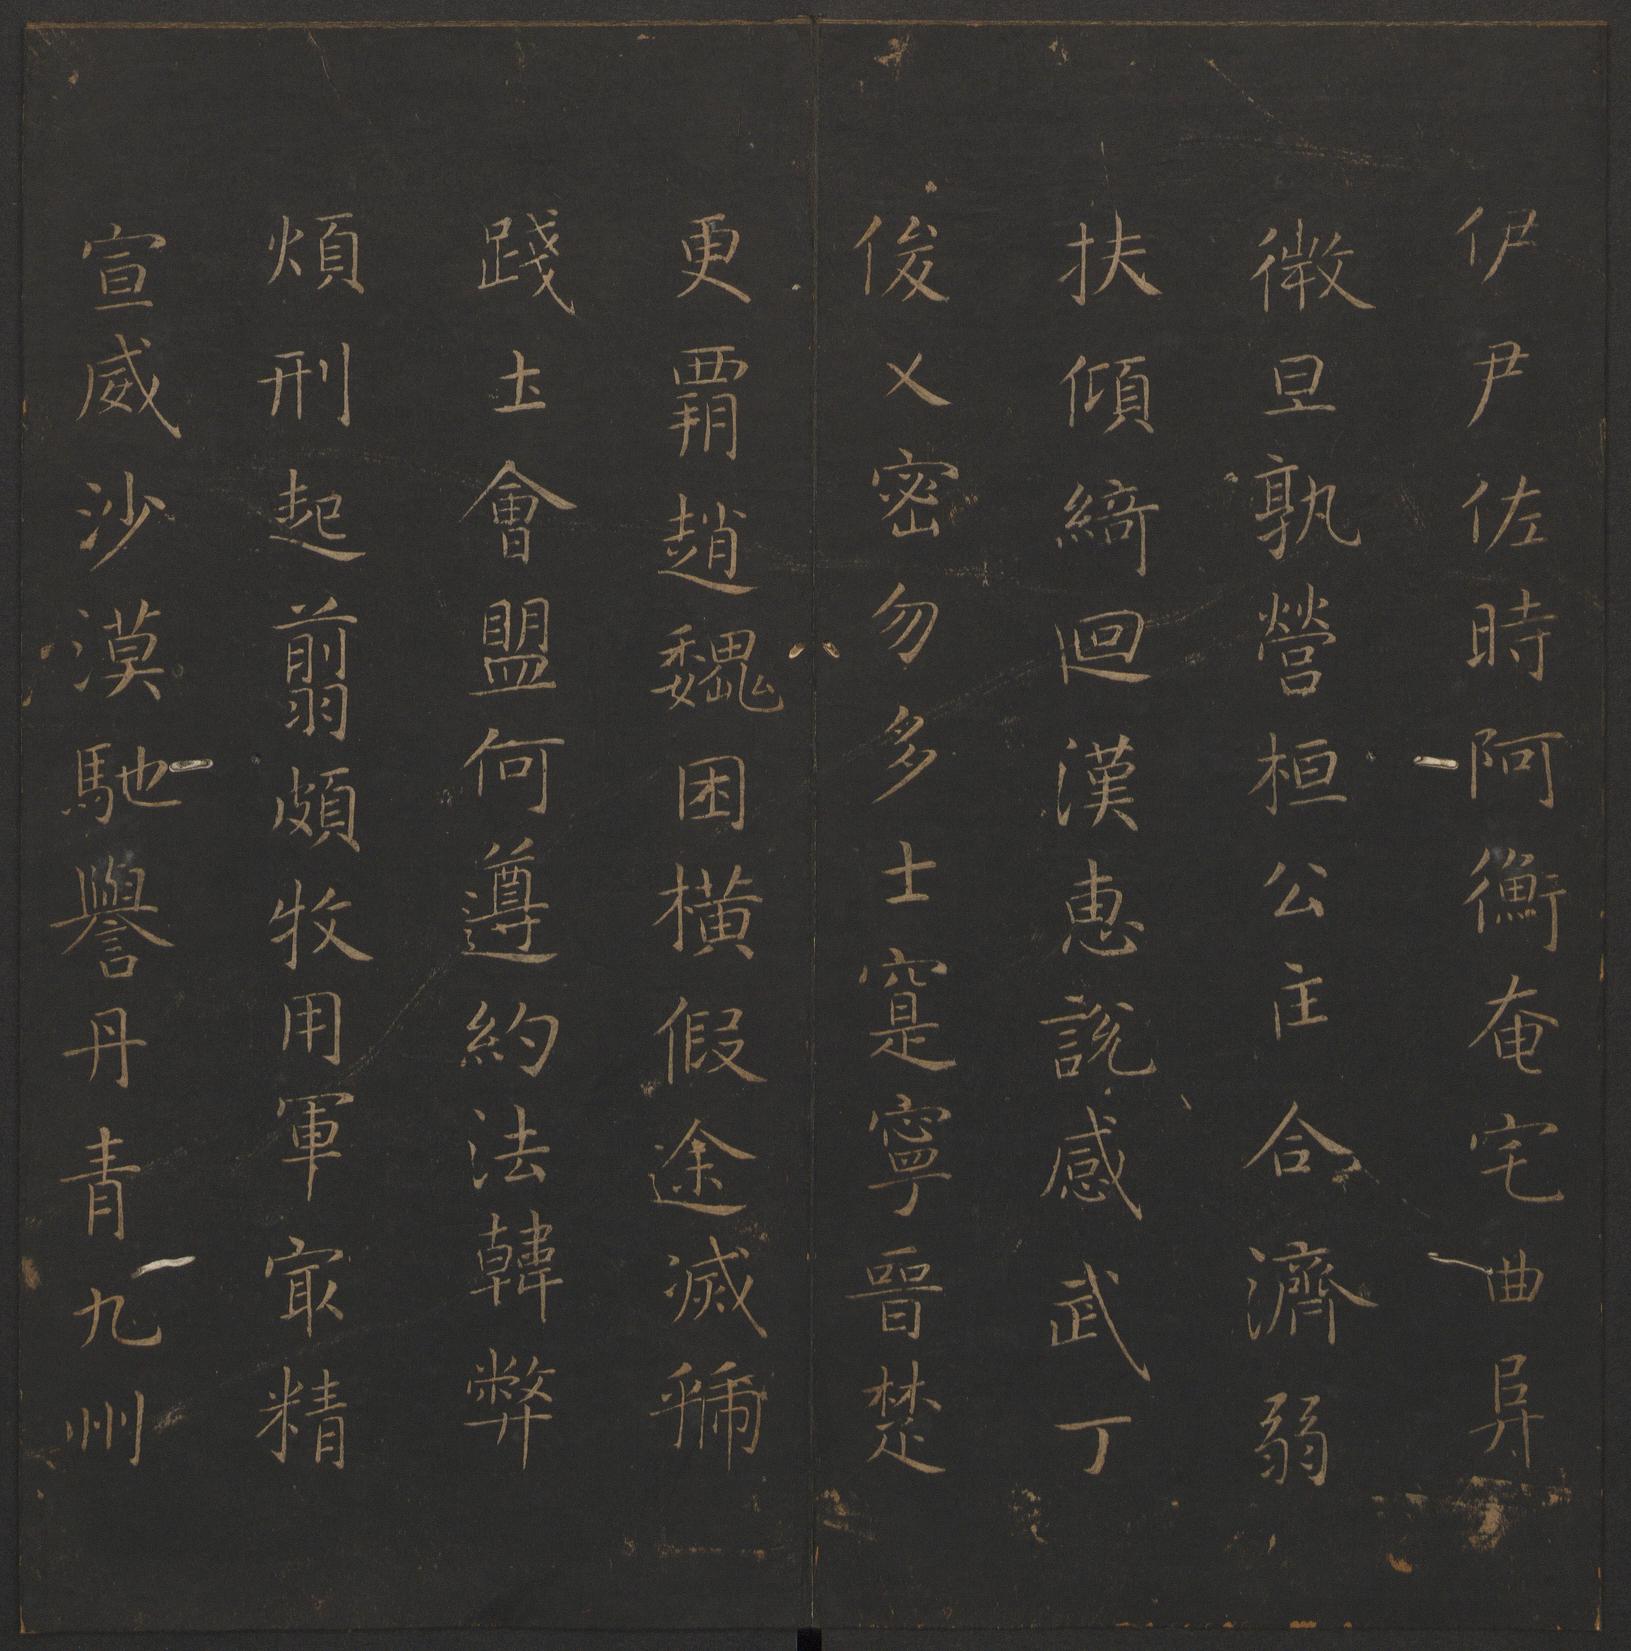 伊尹佐時阿衡奄宅曲阜
微旦孰營桓公匡合濟弱
扶傾綺迴漢惠說感武丁
俊乂密勿多士寔寧晉楚
更覇趙魏困橫假途滅虢
踐土會盟何遵約法韓弊
煩刑起翦頗牧用軍㝡精
宣威沙漠馳譽丹青九州